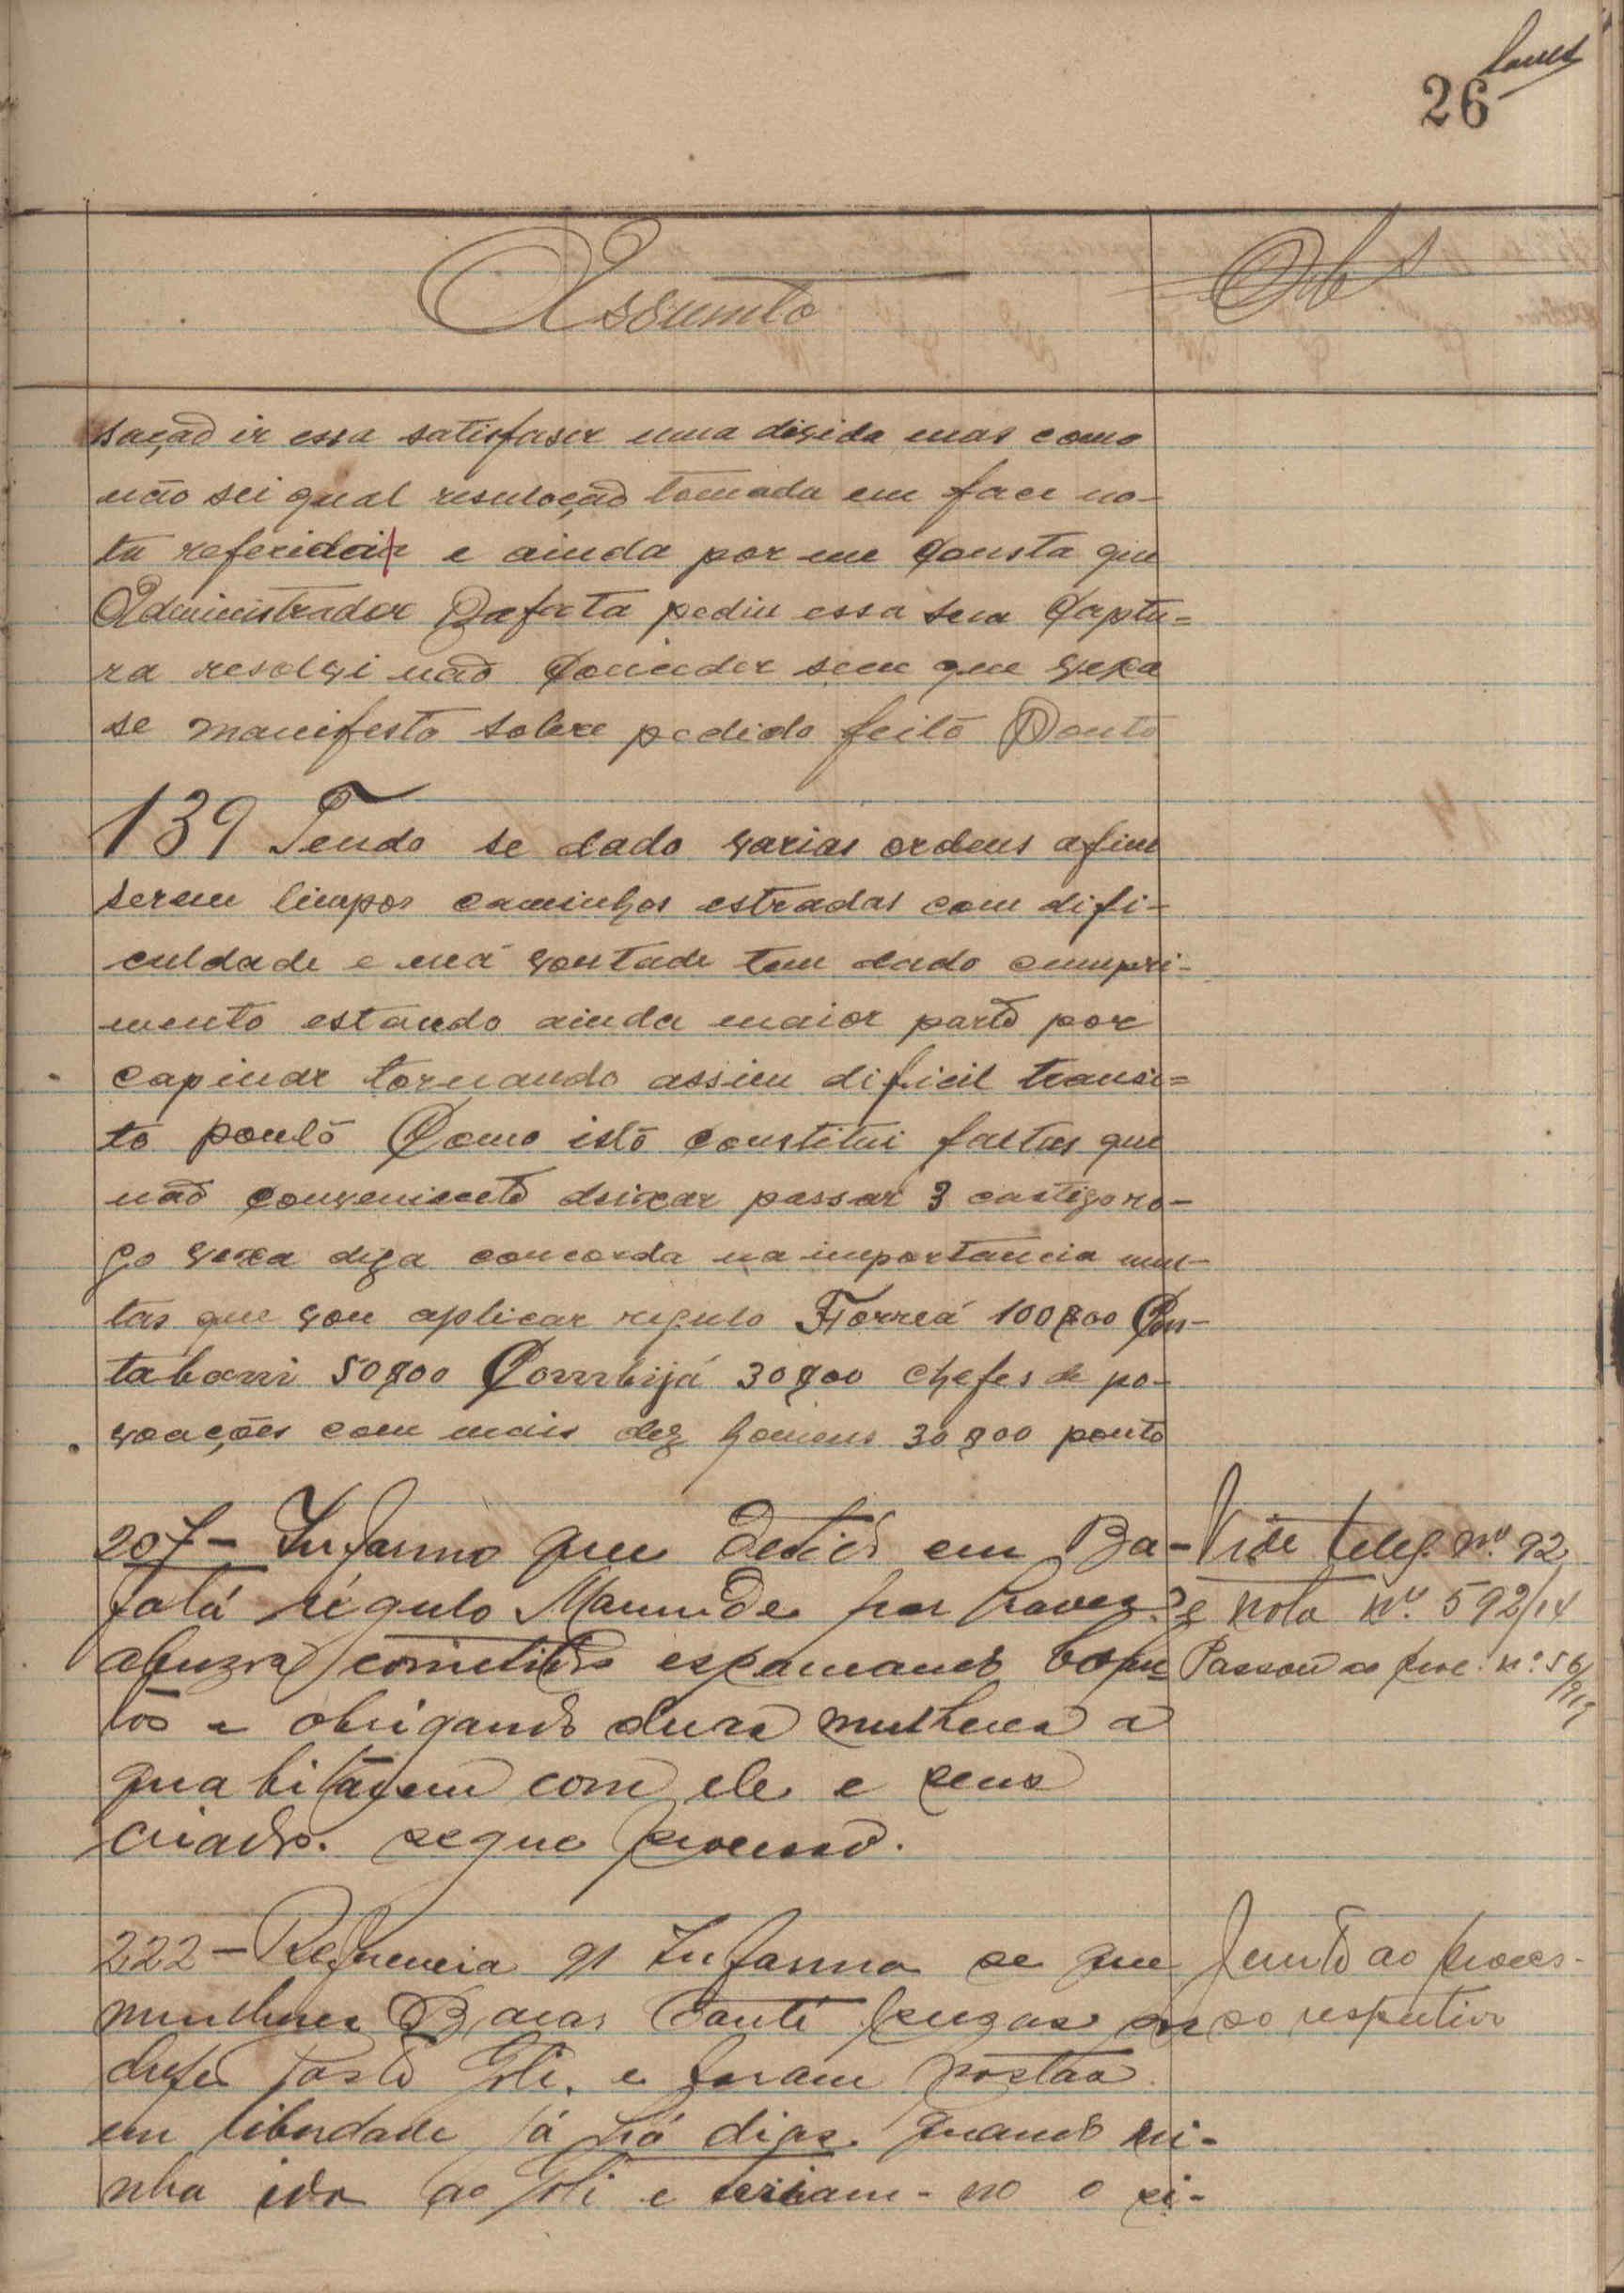 26
Assumto
Obs
sação ir essa satisfaser uma divida mas como
não sei qual resuloção tomada em face no-
ta referida e ainda por me consta que
Administrador Bafata pediu essa sua captu-
ra resolvi não conceder sem que vexa
se manifesto sobre pedido feito Ponto
139 Tendo se dado varias ordens afim
serem limpos caminhos estradas com difi-
culdade e má vontade tem dado cumpri-
mento estando ainda maior parte por
capinar tornando assim dificil transi=
to ponto Como isto constitui faltas que
não conveniente deixar passar s castigo ro-
go vexa diga concorda na importancia mul-
tas que vou aplicar regulo Forreá 100$00 Con-
tabani 50$00 Corrubijá 30$00 chefes de po-
voações com mais dez homens 30$00 ponto
207- Informo que detido em Ba-
fatá régulo Mamude por haver
abuzos cometidos espancando
e obrigando duas mulheres a
quabitarem com ele e seus
criados. segue processo.
Vide teleg. nº 92
e nota nº 592/14
Passou ao proc. nº 56/913
222- Referencia 91 Informo se que
mulheres
chefe Posto Gole. e foram postas
em liberdade já há dias. quando
nha ido ao Gole e
Junto ao proces-
so respectivo